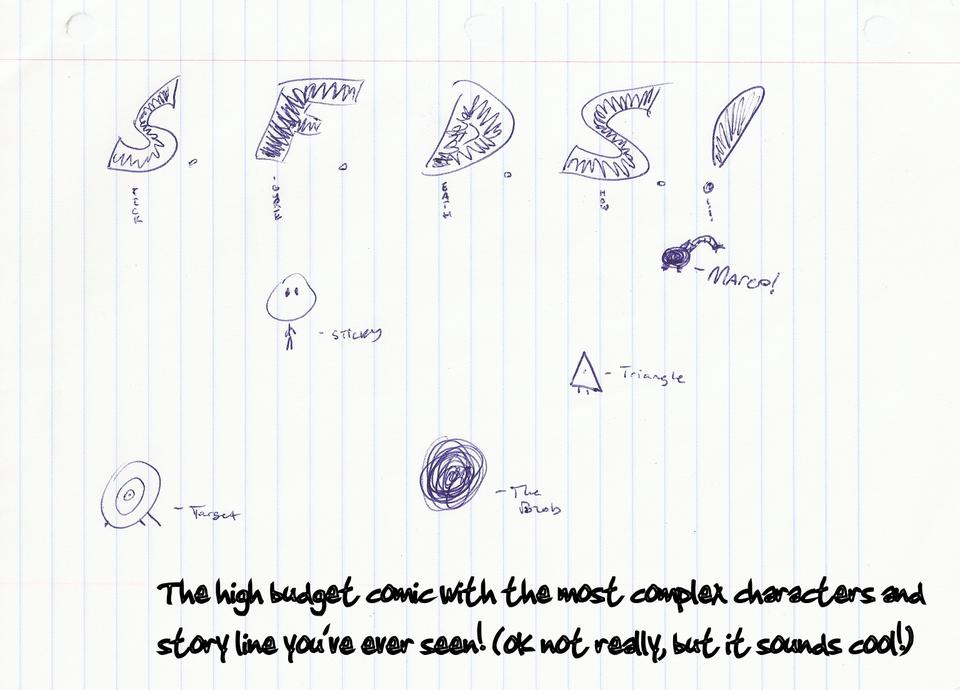 S. F. D. S. !
TICK IGURE EATH HOW
- Marco!
- Sticky
- Triangle
- Target
- The
Blob
The high budget comic with the most complex characters and
story line you've ever seen! (ok not really, but it sounds cool!)